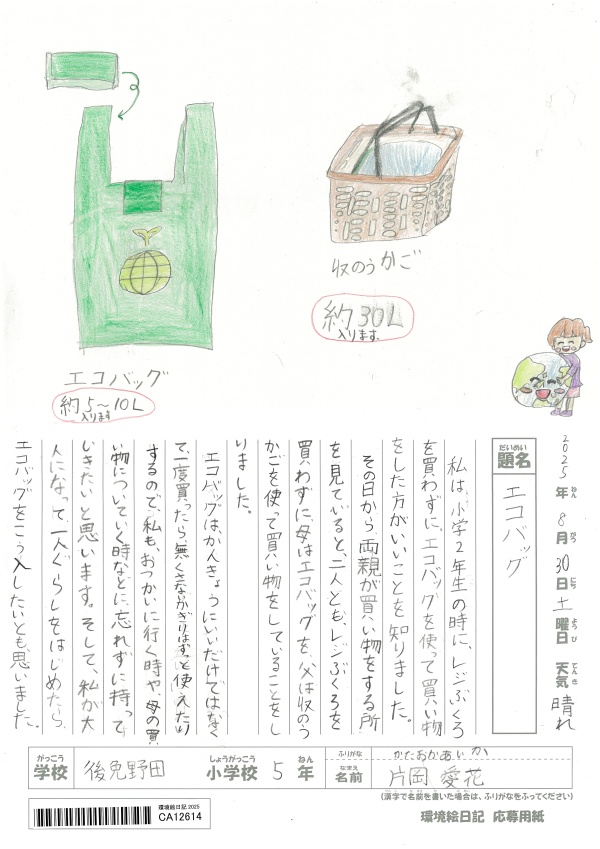 エコバッグ
約5〜10L
入ります
収のうかご
約30L
入ります。
2025年8月30日土曜日 天気 晴れ
ねん
がつ
にち
ようび
てんき
だいめい
題名
エコバッグ
私は、小学2年生の時に、レジぶくろ
を買わずに、エコバッグを使って買い物
をした方がいいことを知りました。
その日から、両親が買い物をする所
を見ていると、二人とも、レジぶくろを
買わずに、母はエコバッグを、父は収のう
かごを使って買い物をしていることをし
りました。
エコバッグは、かんきょうにいいだけではなく
て、一度買ったら、無くさないかぎりはずっと使えたり
するので、私も、おつかいに行く時や、母の買
い物についていく時などに、忘れずに持って
いきたいと思います。そして、私が大
人になって、一人ぐらしをはじめたら、
エコバッグをこう入したいとも、思いました。
がっこう
しょうがっこう
ねん
学校 後免野田 小学校 5年
ふりがな かたおかあいか
なまえ
名前 片岡 愛花
(漢字で名前を書いた場合は、ふりがなをふってください)
環境絵日記 2025
CA12614
環境絵日記 応募用紙